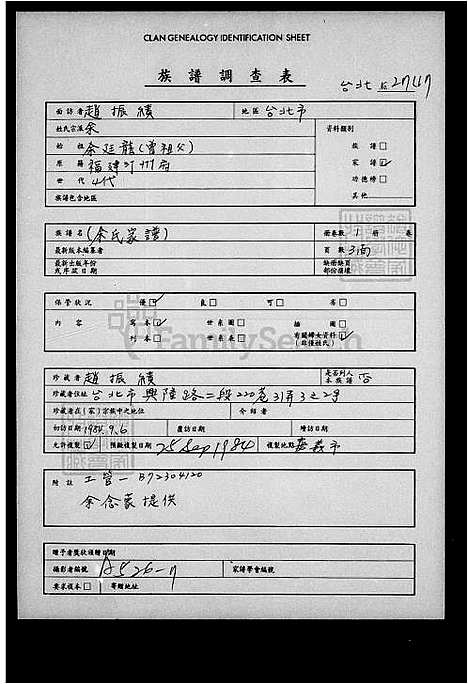 CLAN GENEALOGY IDENTIFICATION SHEET
族譜調查表
台北
面訪者 趙振績 地區 台北市
姓氏宗派 余 資料類別
始祖 余廷龍(曾祖父) 族譜□
原籍 福建汀州府 家譜☑
世代 4代 功德榜□
族譜包含地區 其他
族譜名 (余氏家譜) 冊卷數 1 冊 卷
最新版本編纂者 頁數 3面
最新出版年份 缺冊缺頁
或序跋日期 部份損壞
保管狀況 優☑ 良□ 可□ 劣□
內容 寫本☑ 世系圖□ 插圖□
刊本□ 世系表□ 有關婦女資料☑
(非僅姓氏)
FamilySearch
珍藏者 趙振績 是否列入本族譜 否
珍藏者住址 台北市興隆路二段220巷31弄3之2号
珍藏者在(家)宗族中之地位 介紹者
初訪日期 1984.9.6 覆訪日期 增訪日期
允許複製☑ 預擬複製日期 25 Sep 1984 複製地點 嘉義市
附註 工管一 B72304120
余念豪提供
贈予者獎狀頒贈日期
攝影者編號 A526-17 家譜學會編號
要求複本□ 寄贈地址